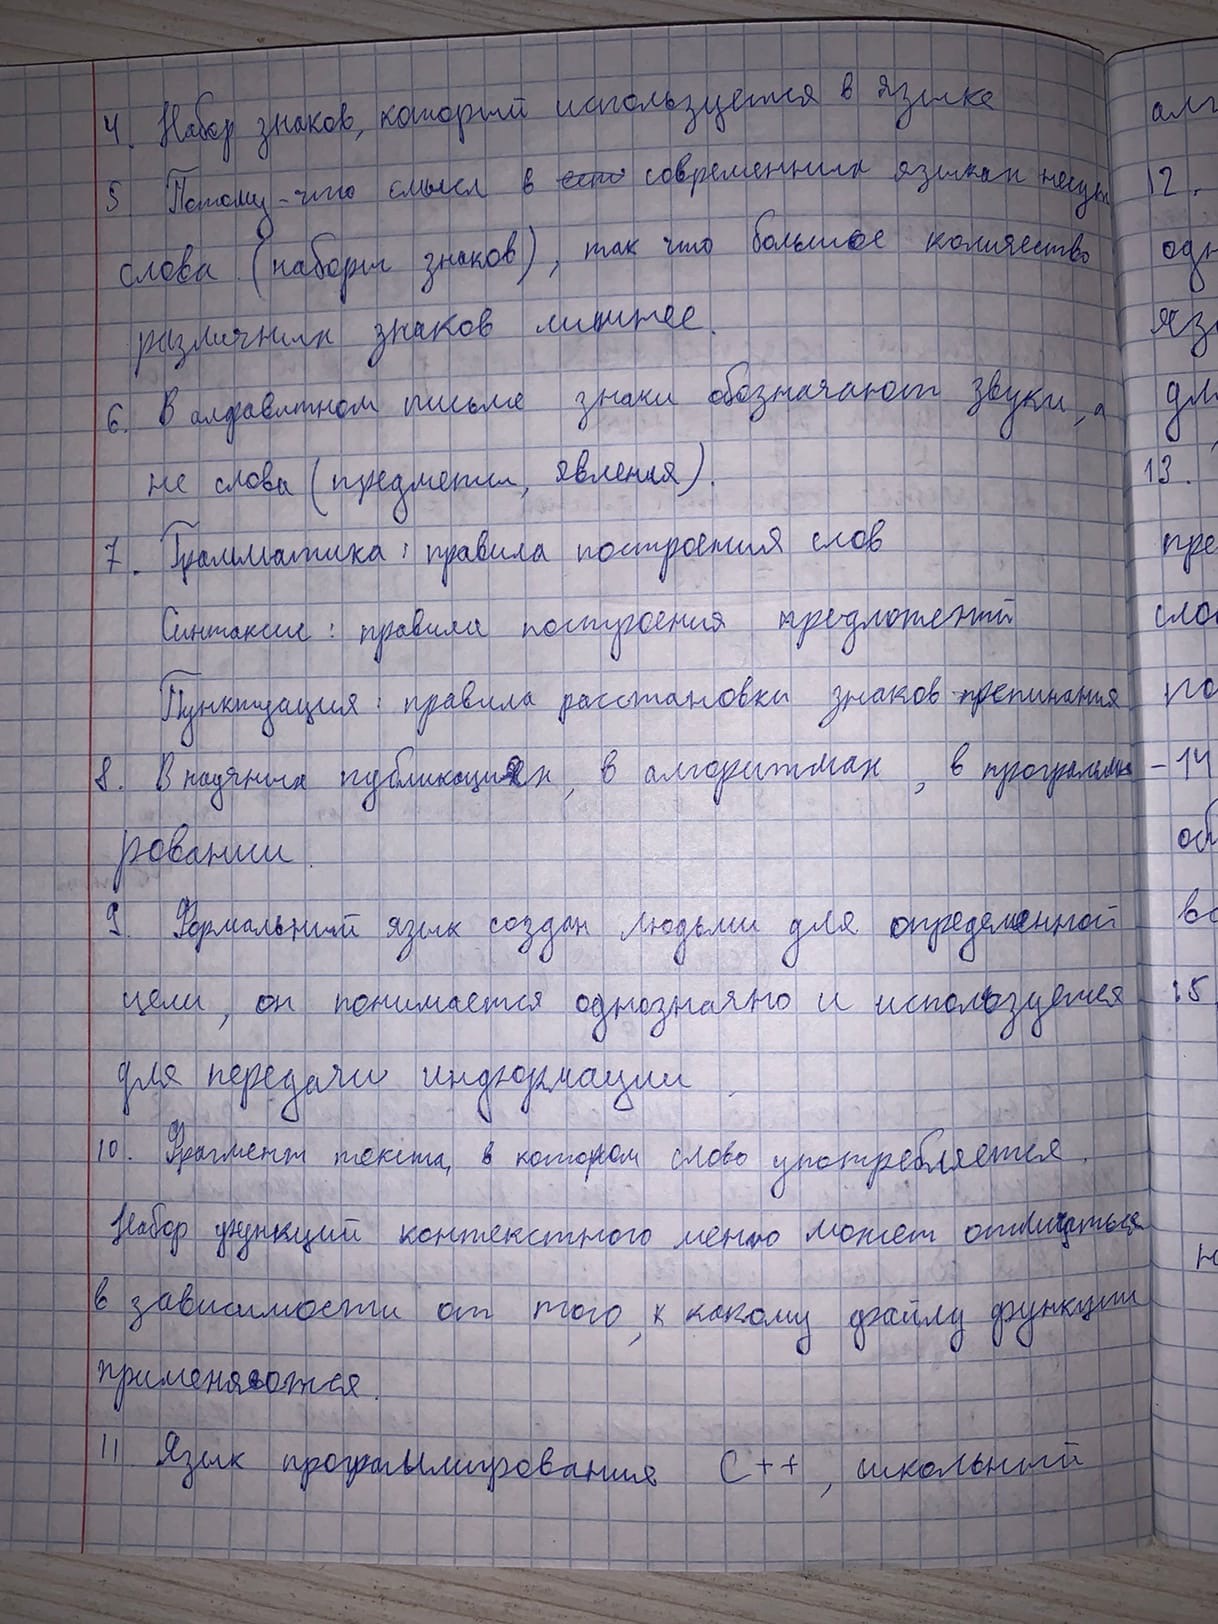 4. Набор знаков, который используется в языке
5 Потому-что смысл в современных языках несут
слова (наборы знаков), так что большое количество
различных знаков лишнее.
6. В алфавитном письме знаки обозначают звуки, а
не слова (предметы, явления).
7. Грамматика: правила построения слов
Синтаксис: правила построения предложений
Пунктуация: правила расстановки знаков препинания
8. В научных публикациях, в алгоритмах, в программи
ровании.
9. Формальный язык создан людьми для определенной
цели, он понимается однозначно и используется
для передачи информации
10. Фрагмент текста, в котором слово употребляется.
Набор функций контекстного меню может отличаться
в зависимости от того, к какому файлу функции
применяются.
11 Язык программирования C++, школьный
алг
12.
одн
язы
дл
13.
пре
сло
по
-14
об
во
15.
н